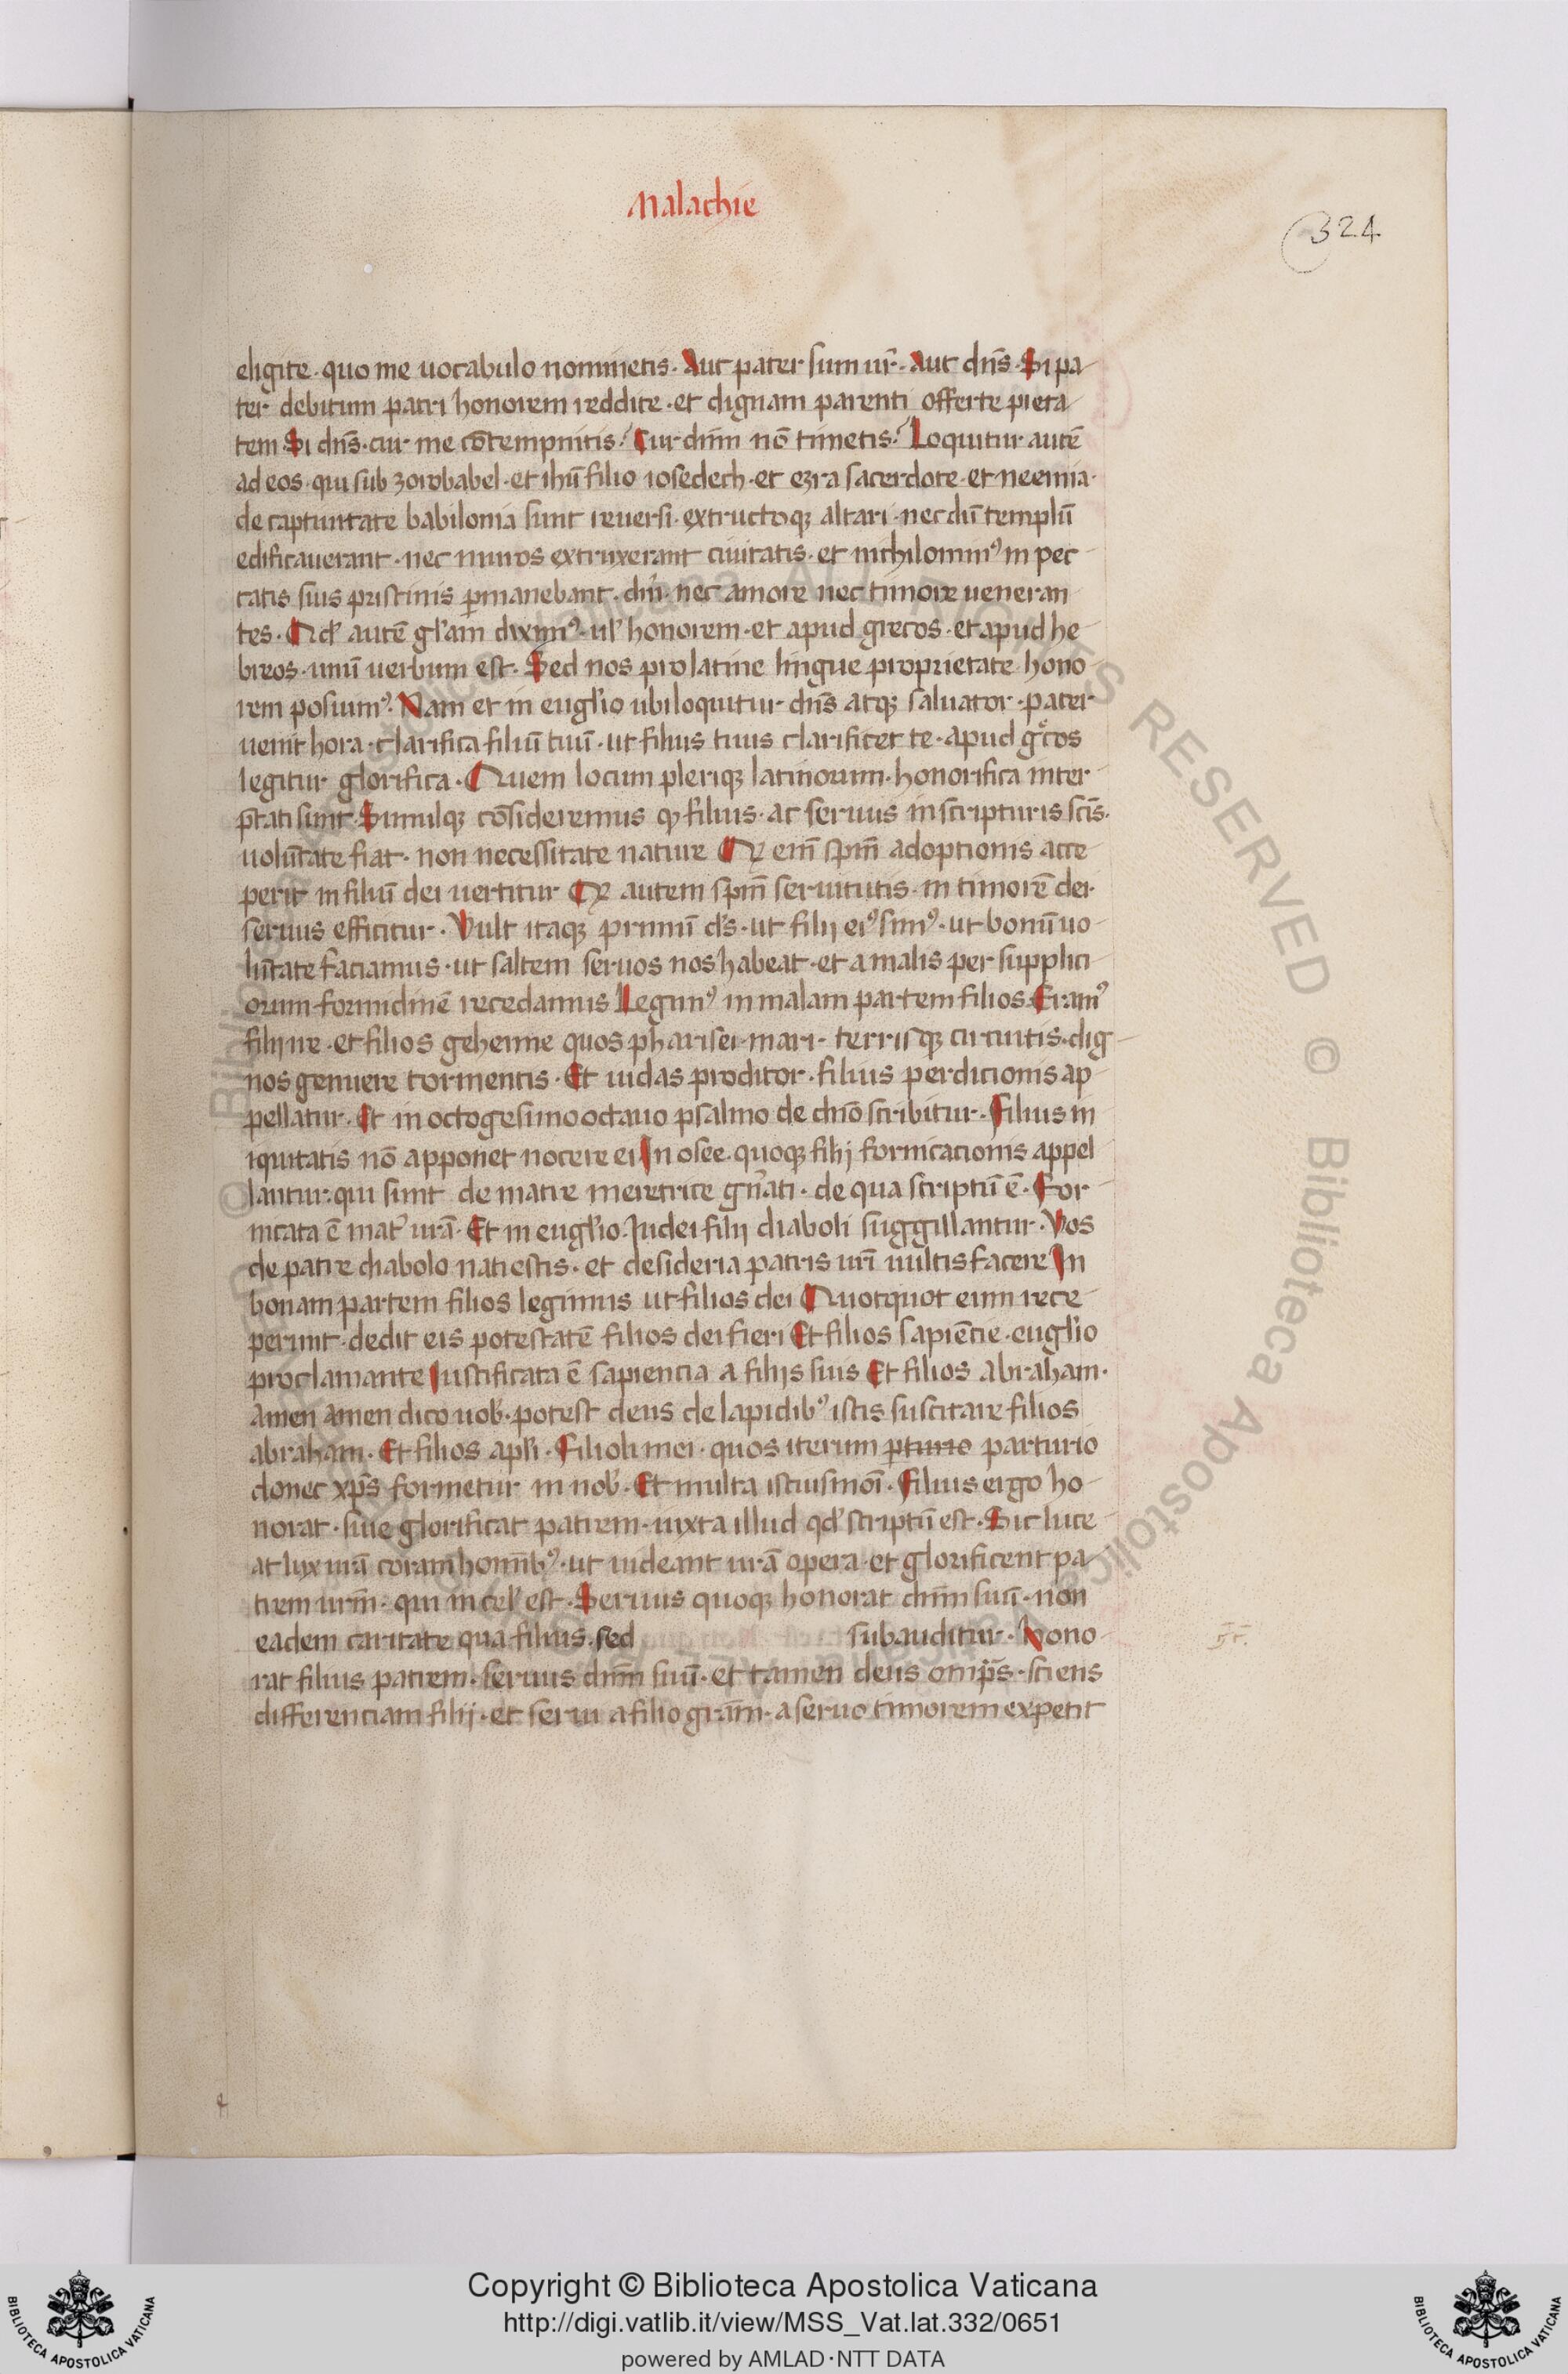 Malachie
324
eligite · quo me uocabulo nominetis · Aut pater sum ur̄ · Aut dn̄s · Si pa
ter debitum patri honorem reddite · et dignam parenti offerte pieta
tem Si dn̄s · cur me cōtempnitis ? Cur dnm̄ nō timetis ? Loquitur autē
ad eos · qui sub zorobabel · et ihū filio iosedech · et ezra sacerdote · et neemia ·
de captiuitate babilonia sunt reuersi · extructoqꝫ altari · necdū templū
edificauerant · nec muros extruxerant ciuitatis · et nichilominꝰ in pec
catis suis pristinis ꝑmanebant · dn̄i nec amore nec timore ueneran
tes · Qd̓ autē gl̓am diximꝰ · ul̓ honorem · et apud grecos · et apud he
breos · unū uerbum est · Sed nos pro latine lingue proprietate hono
rem posuimꝰ · Nam et in eugl̓io ubi loquitur dn̄s atqꝫ saluator · pater
uenit hora · clarifica filiū tuū · ut filius tuus clarificet te · apud gͦcos
legitur glorifica · Quem locum pleriqꝫ latinorum · honorifica inter
p̄tati sunt · Simulqꝫ cōsideremus ꝙ filius · ac seruus in scripturis scīs ·
uolūtate fiat · non necessitate nature Qꝫ em̄ spm̄ adoptionis acce
perit in filiū dei uertitur Qꝫ autem spm̄ seruitutis · in timorē dei ·
seruus efficitur · Vult itaqꝫ primū d̄s · ut filii eiꝰ simꝰ · ut bonū uo
lūtate faciamus · ut saltem seruos nos habeat · et a malis per supplici
orum formidinē recedamus Legimꝰ in malam partem filios · Eramꝰ
filii ire · et filios gehenne quos pharisei · mari · terrisqꝫ circuitis · dig
nos genuere tormentis · Et iudas proditor · filius perdicionis ap
pellatur · Et in octogesimo octauo psalmo de chr̄o scribitur · Filius in
iquitatis nō apponet nocere ei In osee quoqꝫ filij fornicacionis appel
lantur · qui sunt de matre meretrice gn̄ati · de qua scriptū ē · For
nicata ē mat̓ urā · Et in eugl̓io · Iudei filii diaboli suggillantur · Vos
de patre diabolo nati estis · et desideria patris urī uultis facere In
bonam partem filios legimus ut filios dei Quotquot eum rece
perunt · dedit eis potestatē filios dei fieri Et filios sapiētie · eugl̓io
proclamante Iustificata ē sapiencia a filijs suis Et filios abraham ·
amen amen dico uob̓ · potest deus de lapidibꝰ istis suscitare filios
abraham · Et filios apl̓i · Filioli mei · quos iterum ꝑturio parturio
donec xp̄s formetur in nob̓ · Et multa istiusmōi · Filius ergo ho
norat · siue glorificat patrem · iuxta illud qd̓ scriptū est · Sic luce
at lux urā coram hoīnibꝰ · ut uideant urā opera · et glorificent pa
trem urm̄ · qui in cel̓ est · Seruus quoqꝫ honorat dnm̄ suū · non
eadem caritate qua filius · sed subauditur · Hono
rat filius patrem · seruus dnm̄ suū · et tamen deus omp̄s · sciens
differenciam filij · et serui a filio grām · a seruo timorem expetit
© Biblioteca Apostolica Vaticana ALL RIGHTS RESERVED © Biblioteca Apostolica Vaticana
BIBLIOTECA APOSTOLICA VATICANA
Copyright © Biblioteca Apostolica Vaticana
http://digi.vatlib.it/view/MSS_Vat.lat.332/0651
powered by AMLAD·NTT DATA
BIBLIOTECA APOSTOLICA VATICANA